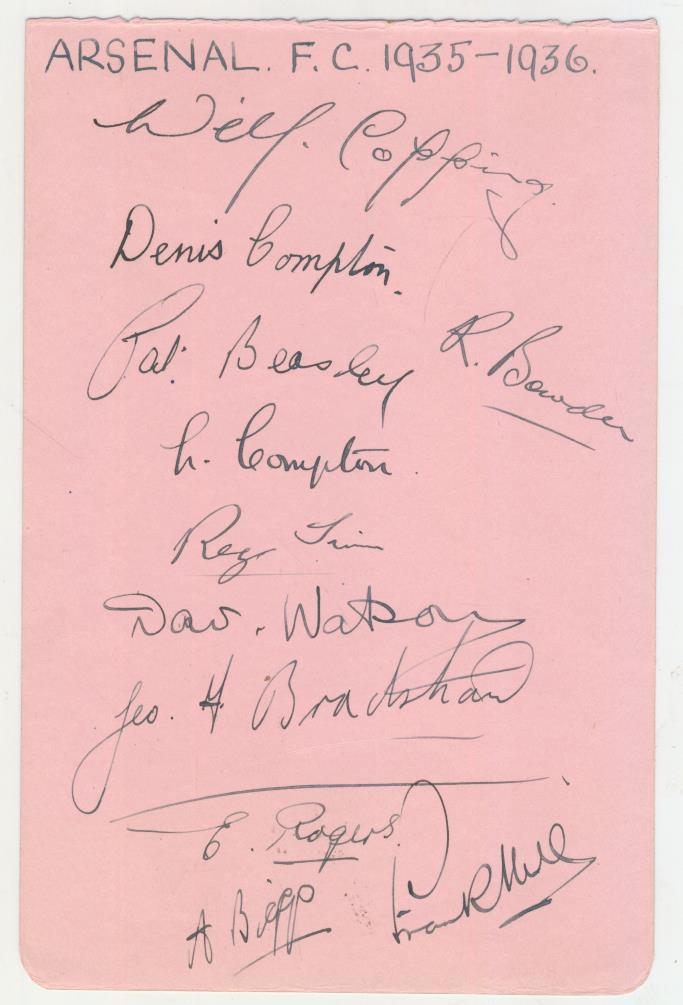 ARSENAL. F.C. 1935-1936.
Wilf. Copping.
Denis Compton.
Pat. Beasley
R. Bowden
L. Compton.
Reg. Trim
Dav. Watson
Geo. H Bradshaw
E. Rogers.
A Biggs
Frank Hill